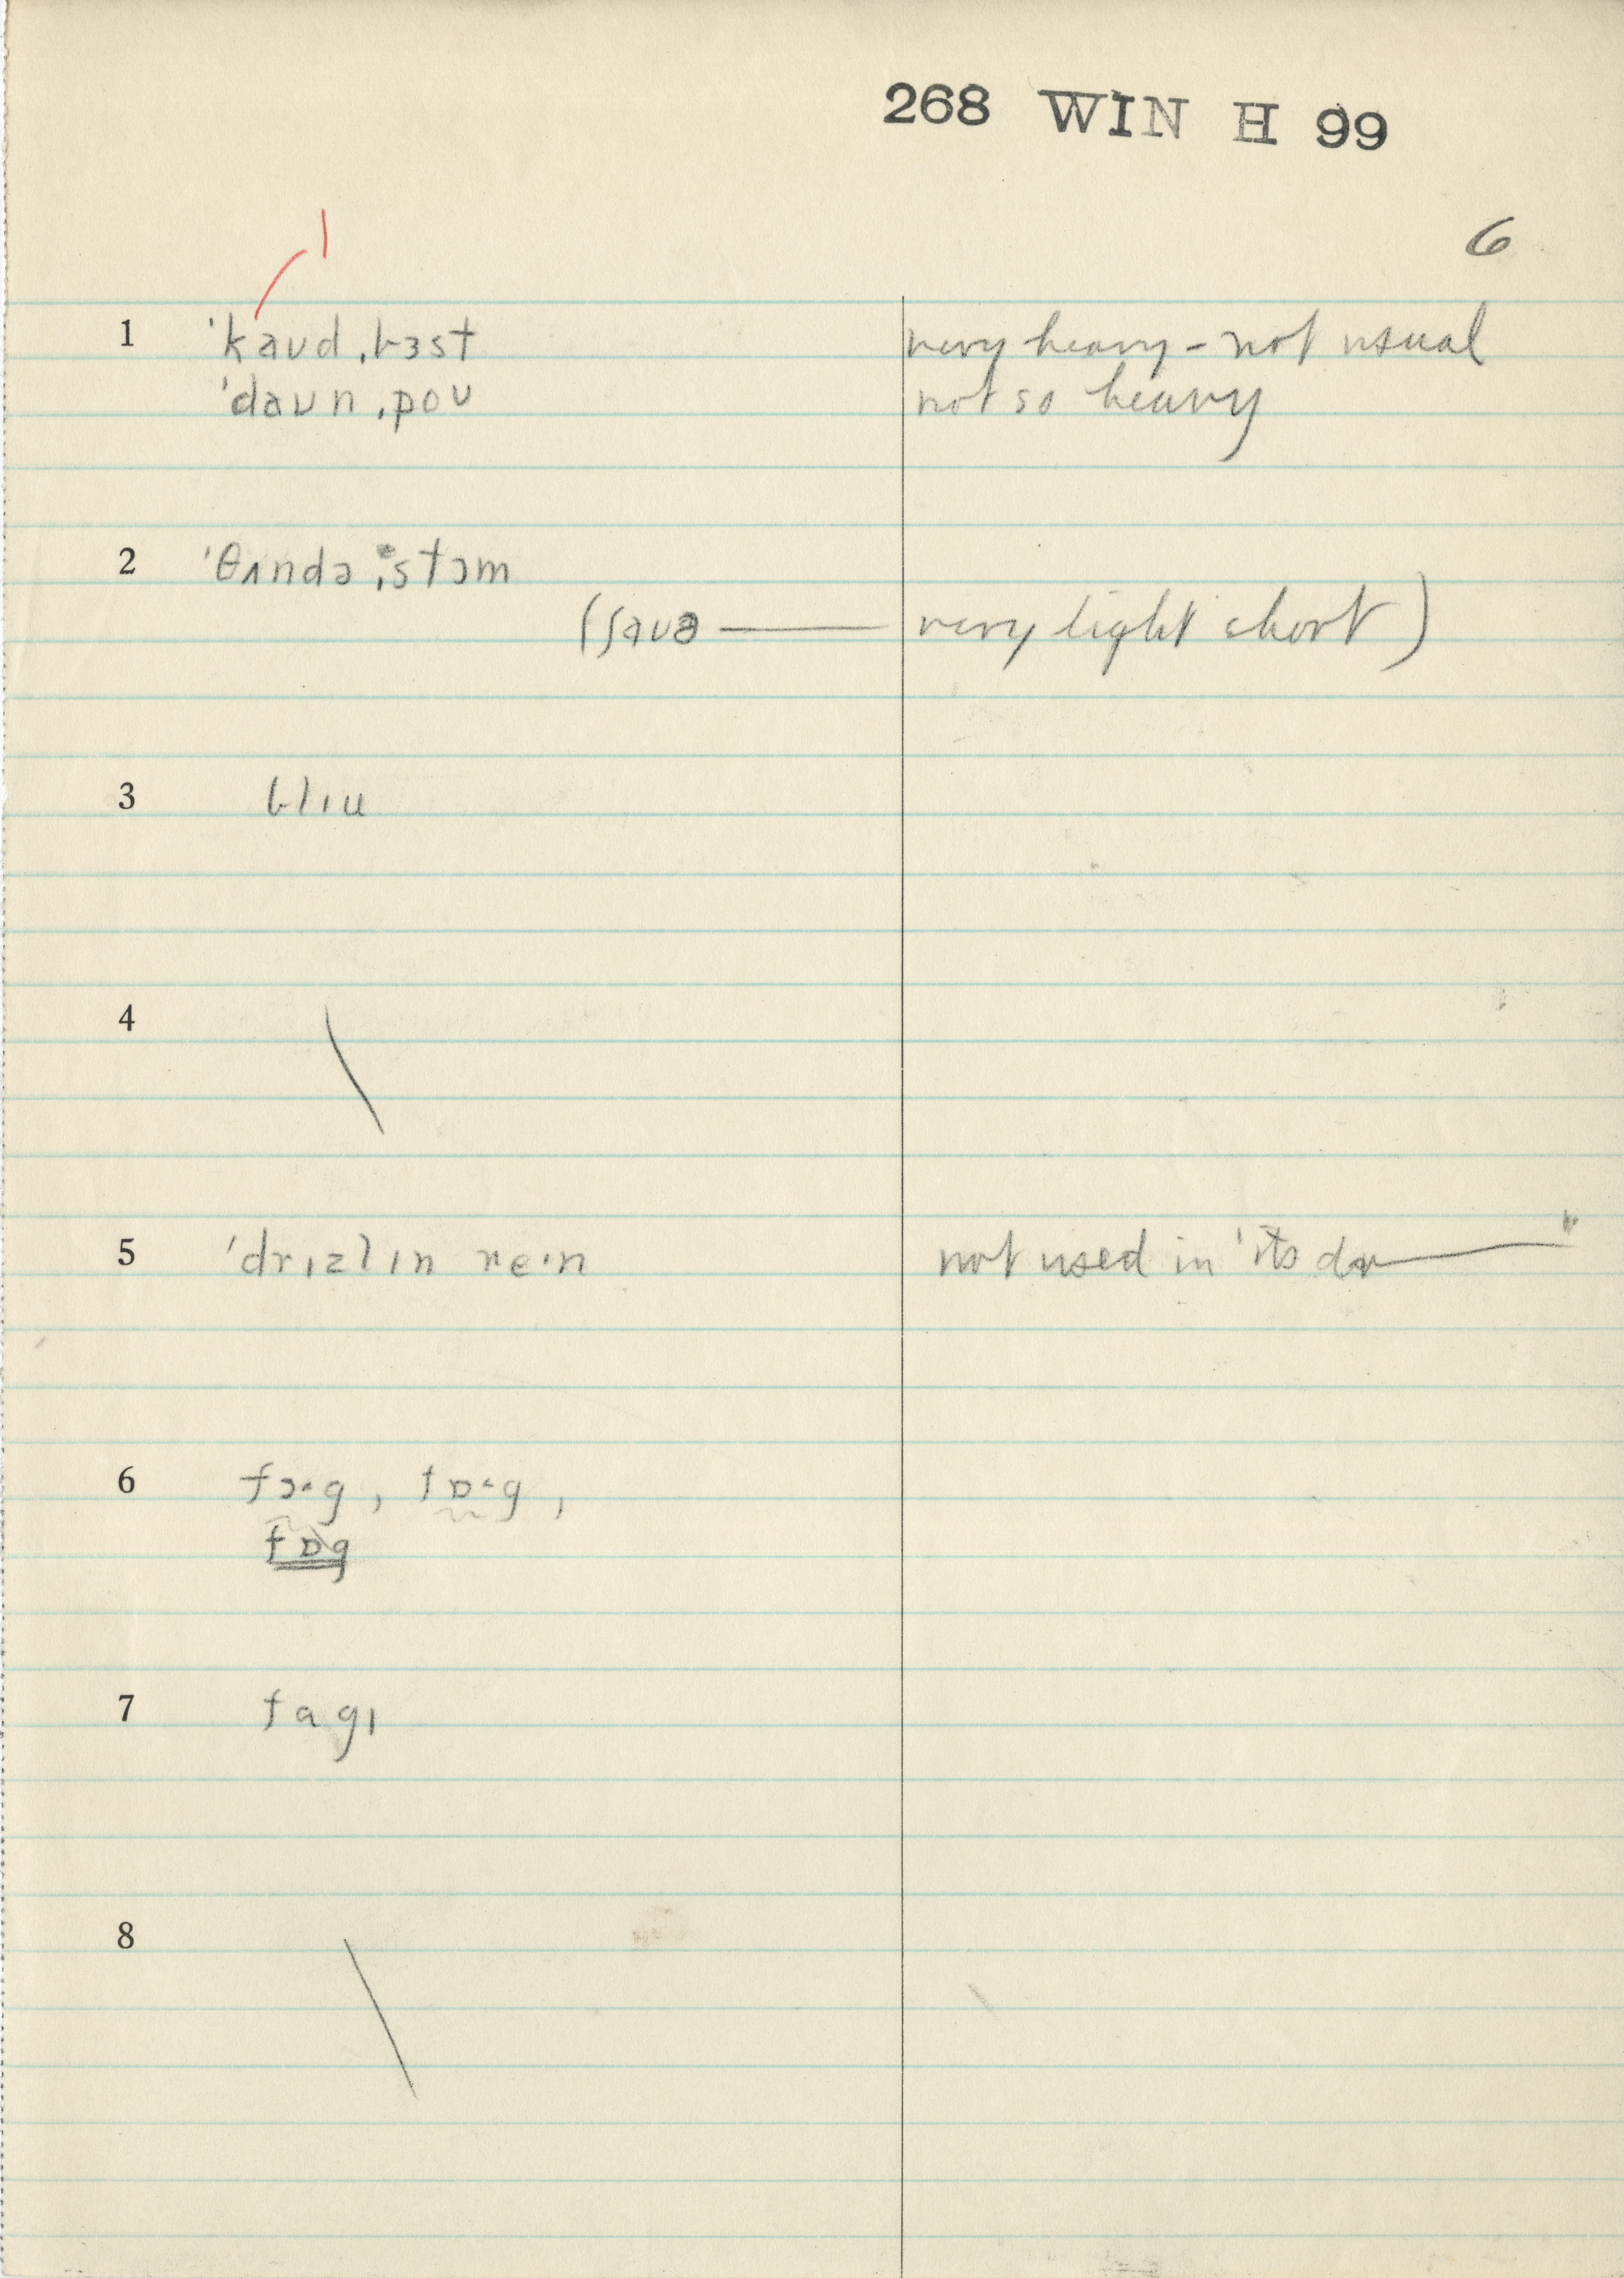 268 WIN H 99
6
l
1 ˈkaʊdˌbɜst very heavy - not usual
ˈdaʊnˌpoʊ not so heavy
2 ˈθʌndəˌstɔm
(ʃaʊə —— very light short)
3 blɪu
4
5 ˈdrɪzlɪn reˑn not used in 'its dr——"
6 fɔˑg, fɒˑg,
fɒg
7 fagɪ
8